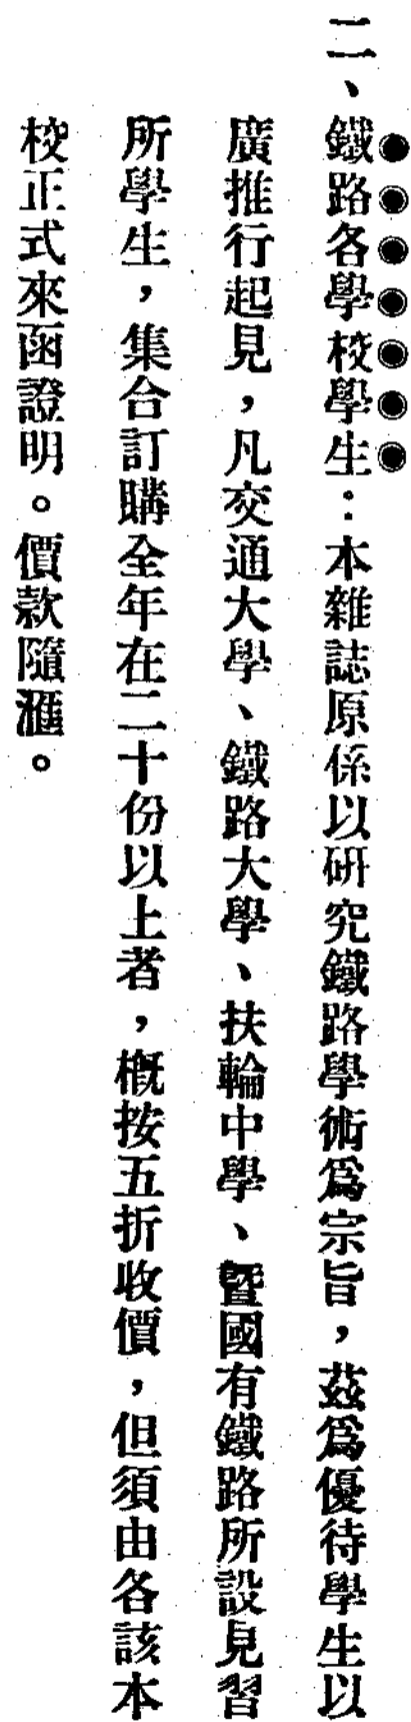 二、鐵路各學校學生：本雜誌原係以硏究鐵路學術爲宗旨，茲爲優待學生以
廣推行起見，凡交通大學、鐵路大學、扶輪中學、暨國有鐵路所設見習
所學生，集合訂購全年在二十份以上者，槪按五折收價，但須由各該本
校正式來函證明。價款隨滙。